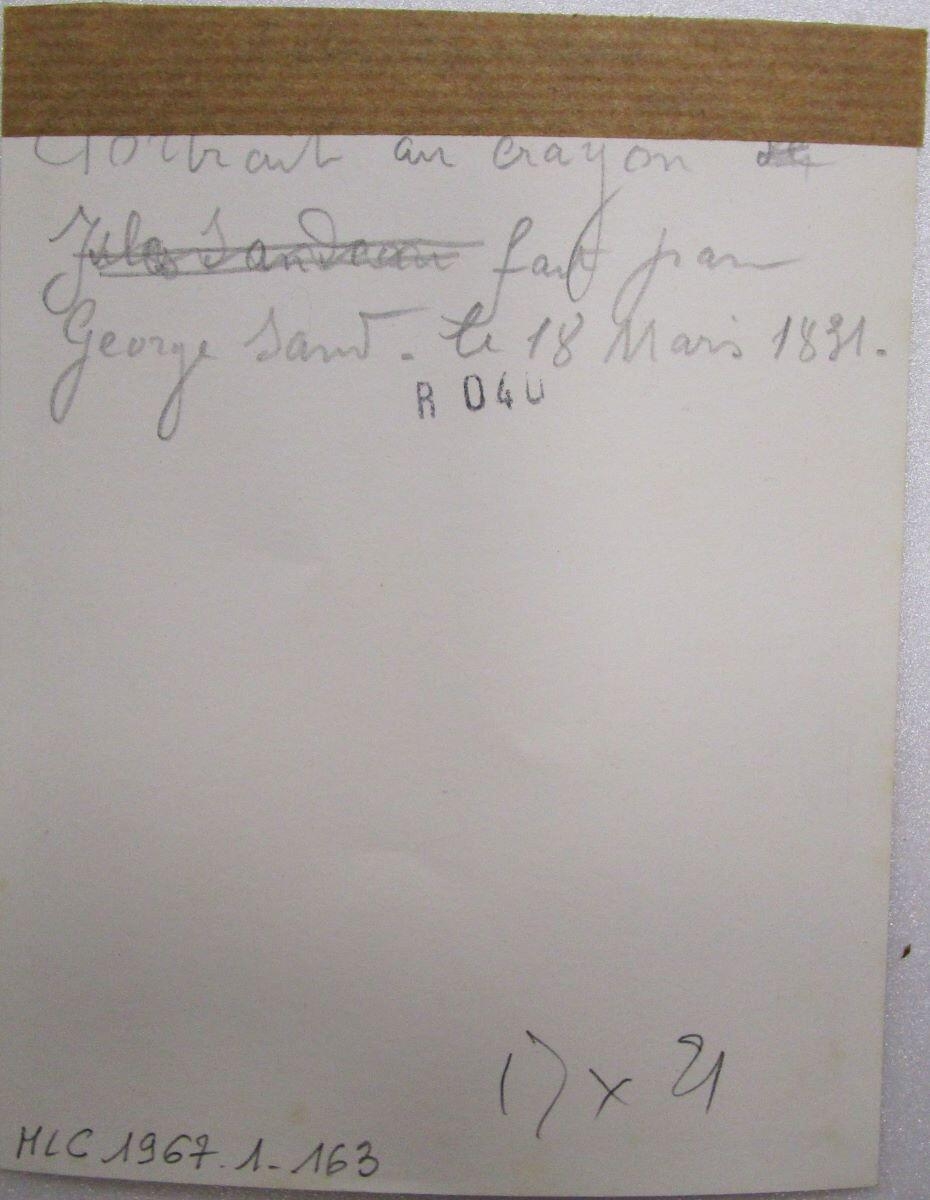 Portrait au crayon de
Jules Sandeau fait par
George Sand. le 18 Mars 1831.
R 040
17 x 21
MLC 1967.1-163